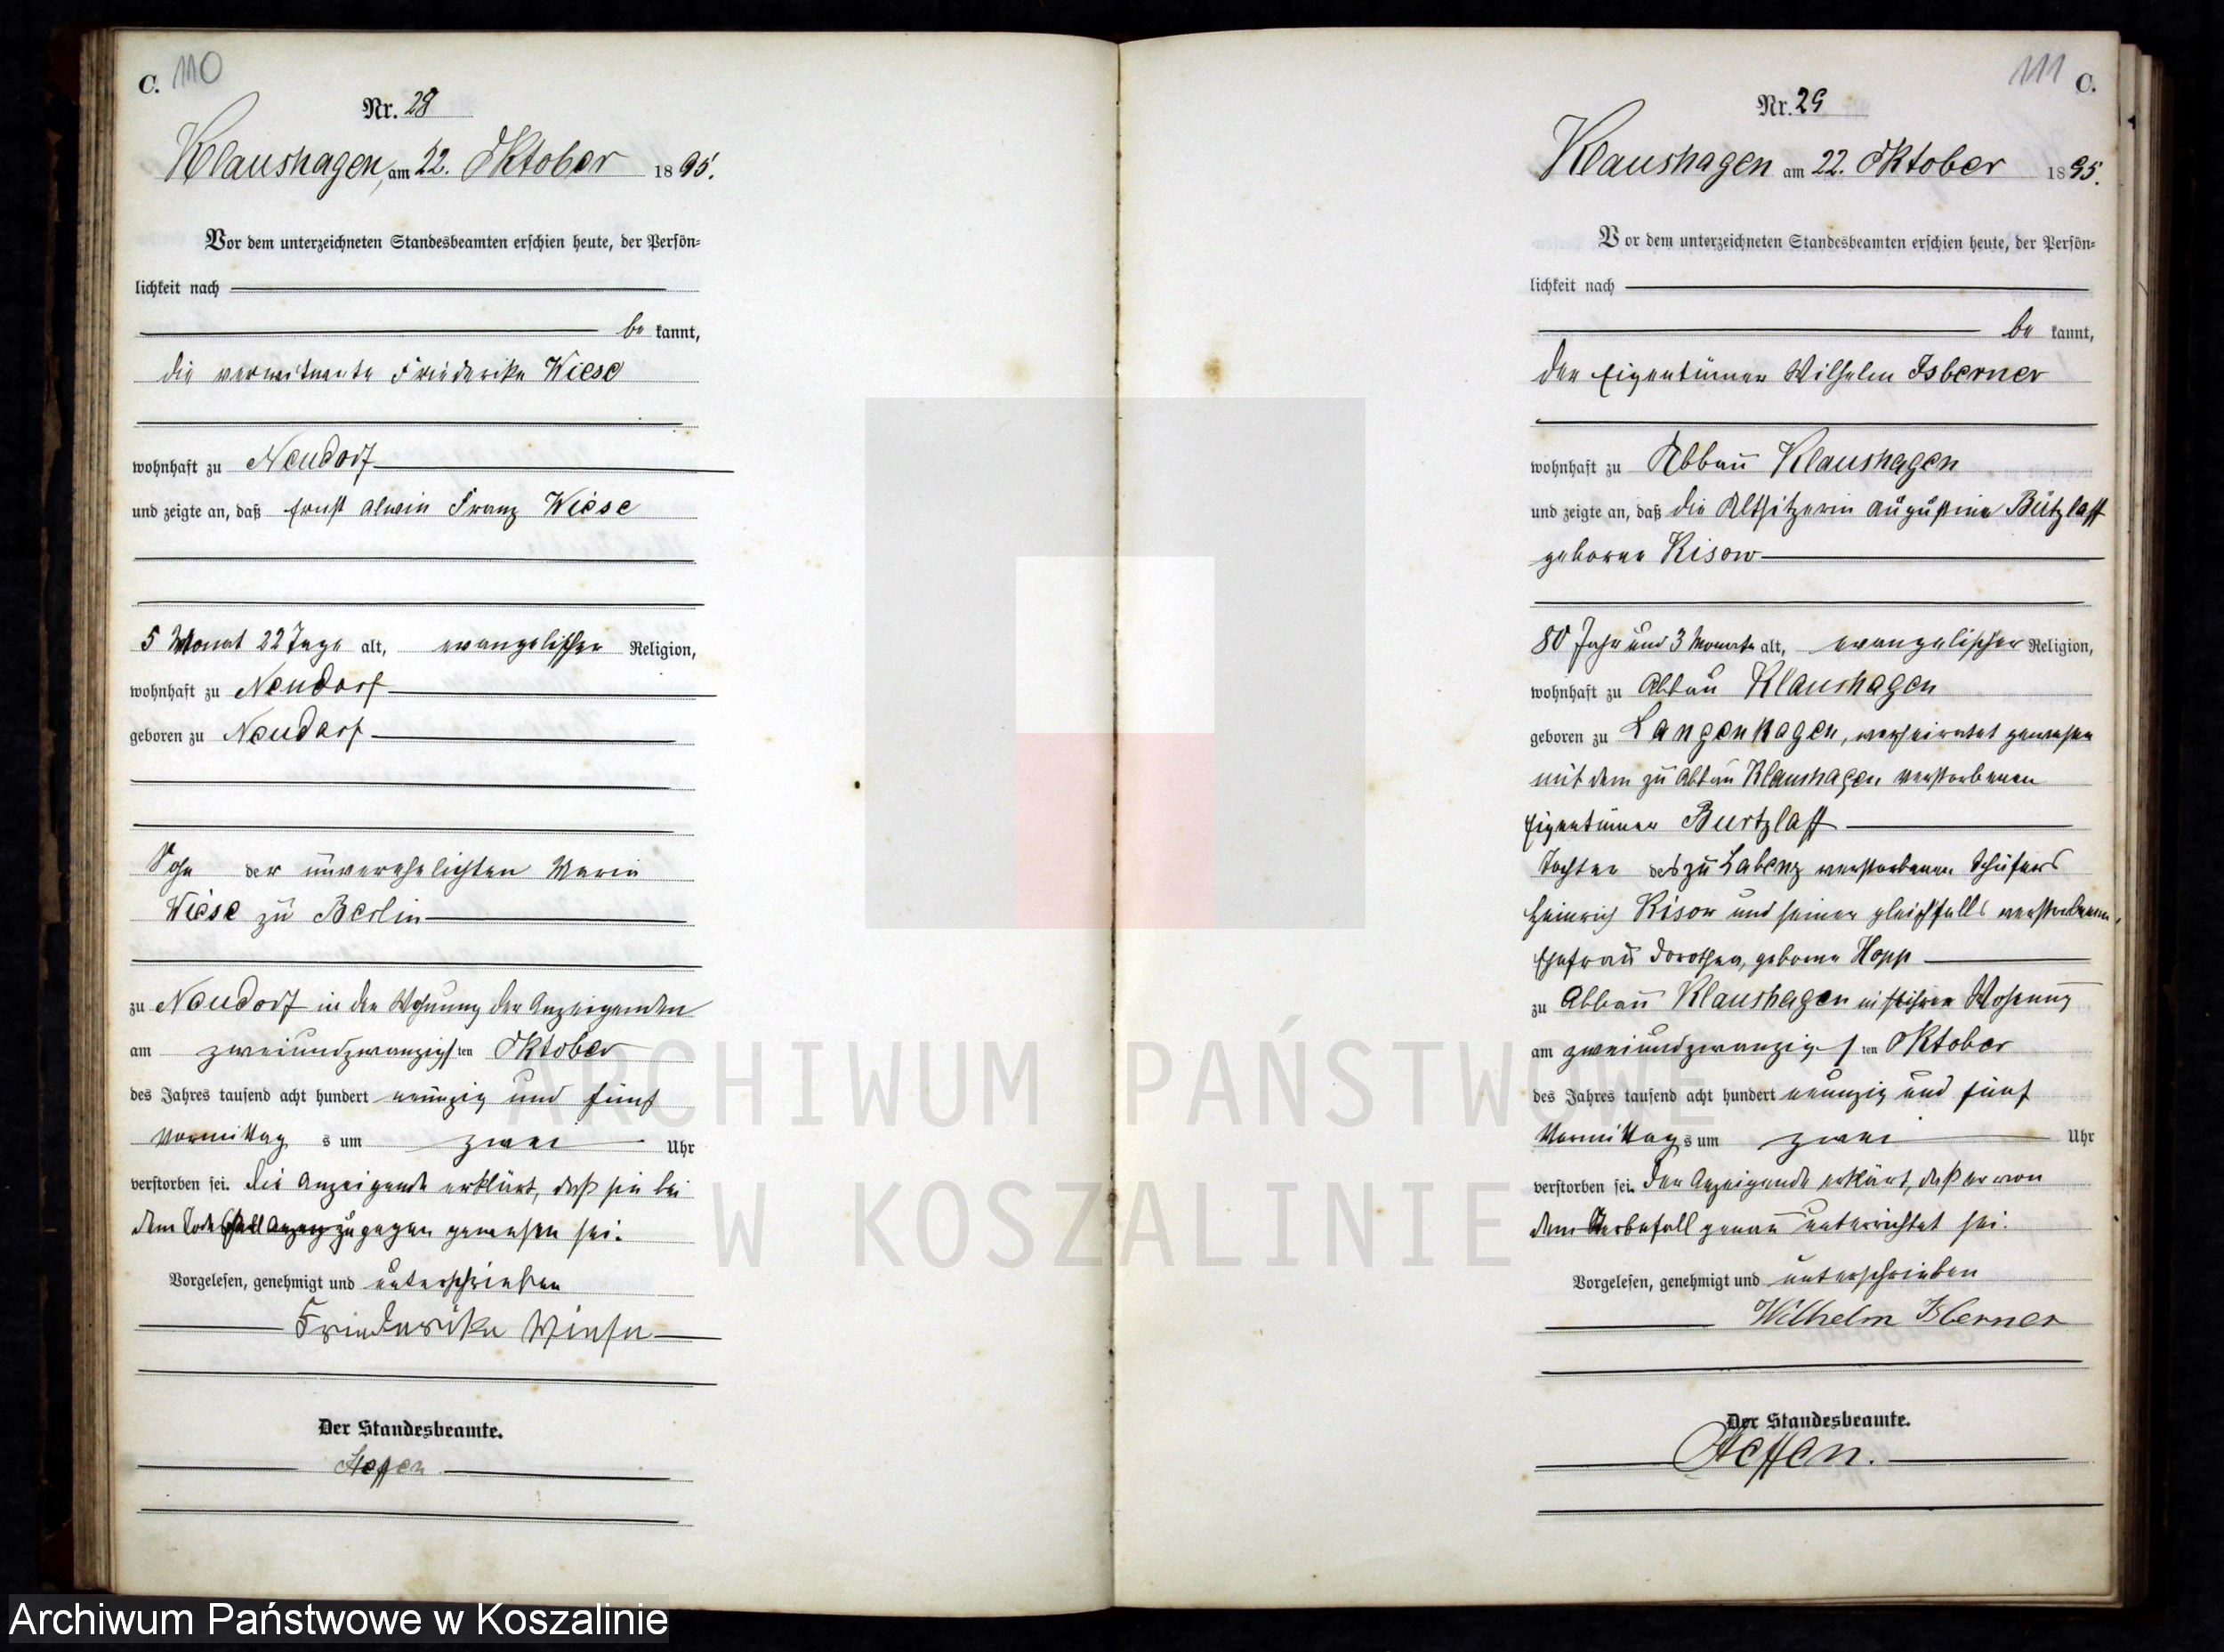 C. 110
Nr. 28
Klaushagen, am 22. Oktober 1895.
Vor dem unterzeichneten Standesbeamten erschien heute, der Persön-
lichkeit nach
be kannt,
die verwitwete Friederike Wiese
wohnhaft zu Neudorf
und zeigte an, daß Ernst Alwin Franz Wiese
5 Monat 22 Tage alt, evangelischer Religion,
wohnhaft zu Neudorf
geboren zu Neudorf
Sohn der unverehelichten Marie
Wiese zu Berlin
zu Neudorf in der Wohnung der Anzeigenden
am zweiundzwanzigsten Oktober
des Jahres tausend acht hundert neunzig und fünf
Vormittag s um zwei Uhr
verstorben sei. Die Anzeigende erklärt, daß sie bei
dem zugegen gewesen sei.
Vorgelesen, genehmigt und unterschrieben
Friederike Wiese
Der Standesbeamte.
Steffen
111 C.
Nr. 29
Klaushagen am 22. Oktober 1895.
Vor dem unterzeichneten Standesbeamten erschien heute, der Persön-
lichkeit nach
be kannt,
der Eigentümer Wilhelm Isberner
wohnhaft zu Abbau Klaushagen
und zeigte an, daß die Altsitzerin Augustine Butzlaff
geborne Risow
80 Jahr und 3 Monate alt, evangelischer Religion,
wohnhaft zu Abbau Klaushagen
geboren zu Langenhagen, verheiratet gewesen
mit dem zu Abbau Klaushagen verstorbenen
Eigentümer Burtzlaff
Tochter des zu Labenz verstorbenen Schäfers
Heinrich Risow und seiner gleichfalls verstorbenen
Ehefrau Dorothea, geborne Hopp
zu Abbau Klaushagen in ihrer Wohnung
am zweiundzwanzigsten Oktober
des Jahres tausend acht hundert neunzig und fünf
Vormittag s um zwei Uhr
verstorben sei. Der Anzeigende erklärt, daß er von
dem Sterbefall genau unterrichtet sei.
Vorgelesen, genehmigt und unterschrieben
Wilhelm Isberner
Der Standesbeamte.
Steffen.
ARCHIWUM PAŃSTWOWE
W KOSZALINIE
Archiwum Państwowe w Koszalinie